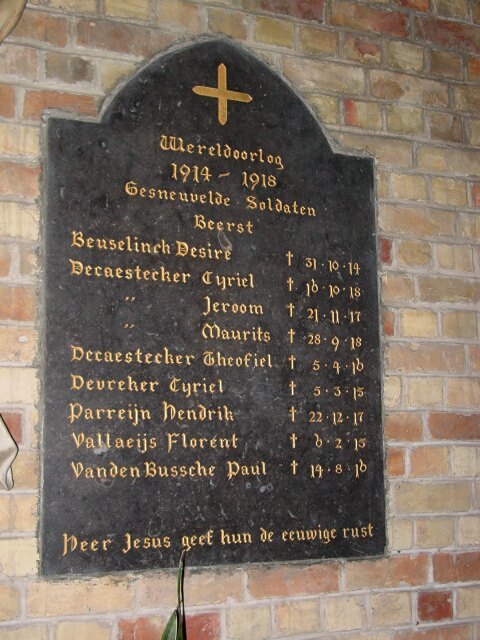 Wereldoorlog
1914 - 1918
Gesneuvelde Soldaten
Beerst
Beuselinck Desire † 31·10·14
Decaestecker Cyriel † 16·10·18
" Jeroom † 21·11·17
" Maurits † 28·9·18
Decaestecker Theofiel † 5·4·16
Devreker Cyriel † 5·3·15
Parreijn Hendrik † 22·12·17
Vallaeijs Florent † 6·2·15
VandenBussche Paul † 14·8·16
Heer Jesus geef hun de eeuwige rust